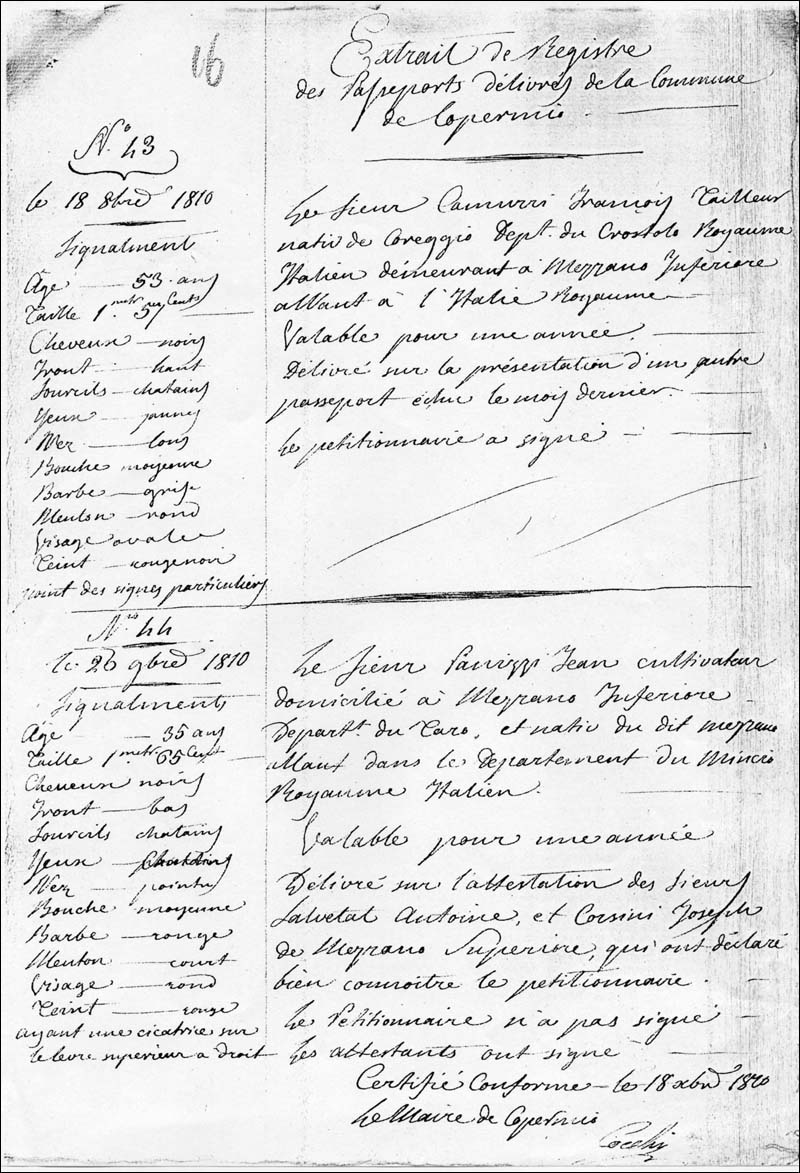 16
Extrait de Registre
des Passeports délivrés de la Commune
de Copermio
N.o 43
le 18 8bre 1810
Signalment
Âge — 53 ans
Taille 1. metr. 57 Cents
Cheveux — noirs
Front — haut
Sourcils — chatains
Yeux — jaunes
Nez — long
Bouche moyenne
Barbe — grise
Menton — rond
Visage ovale
Teint — rougenoir
point des signes particuliers
Le Sieur Camurri François Tailleur
natif de Coreggio Dept. du Crostolo Royaume
Italien démeurant à Mezzano Inferiore
allant à l'Italie Royaume —
Valable pour une année. —
Délivré sur la présentation d'un autre
passeport échu le mois dernier. —
Le petitionnaire a signé —
N.o 44
le 26 9bre 1810
Signalments
Âge — 35 ans
Taille 1. metr. 65 Cent
Cheveux noirs
Front — bas
Sourcils chatains
Yeux — chatains
Nez — pointu
Bouche moyenne
Barbe — rouge
Menton — court
Visage — rond
Teint — rouge
ayant une cicatrice sur
le levre superieur a droit
Le Sieur Panizzi Jean cultivateur
domicilié à Mezzano Inferiore
Departt. du Taro, et natif du dit mezzano
allant dans le Departement du Mincio
Royaume Italien.
Valable pour une année
Délivré sur l'attestation des Sieurs
Salvetat Antoine, et Corsini Joseph
de Mezzano Superiore, qui ont déclaré
bien connoitre le petitionnaire. —
Le Petitionnaire n'a pas signé —
Les attestants ont signé —
Certifié Conforme — le 18 xbre 1810
Le Maire de Copermio